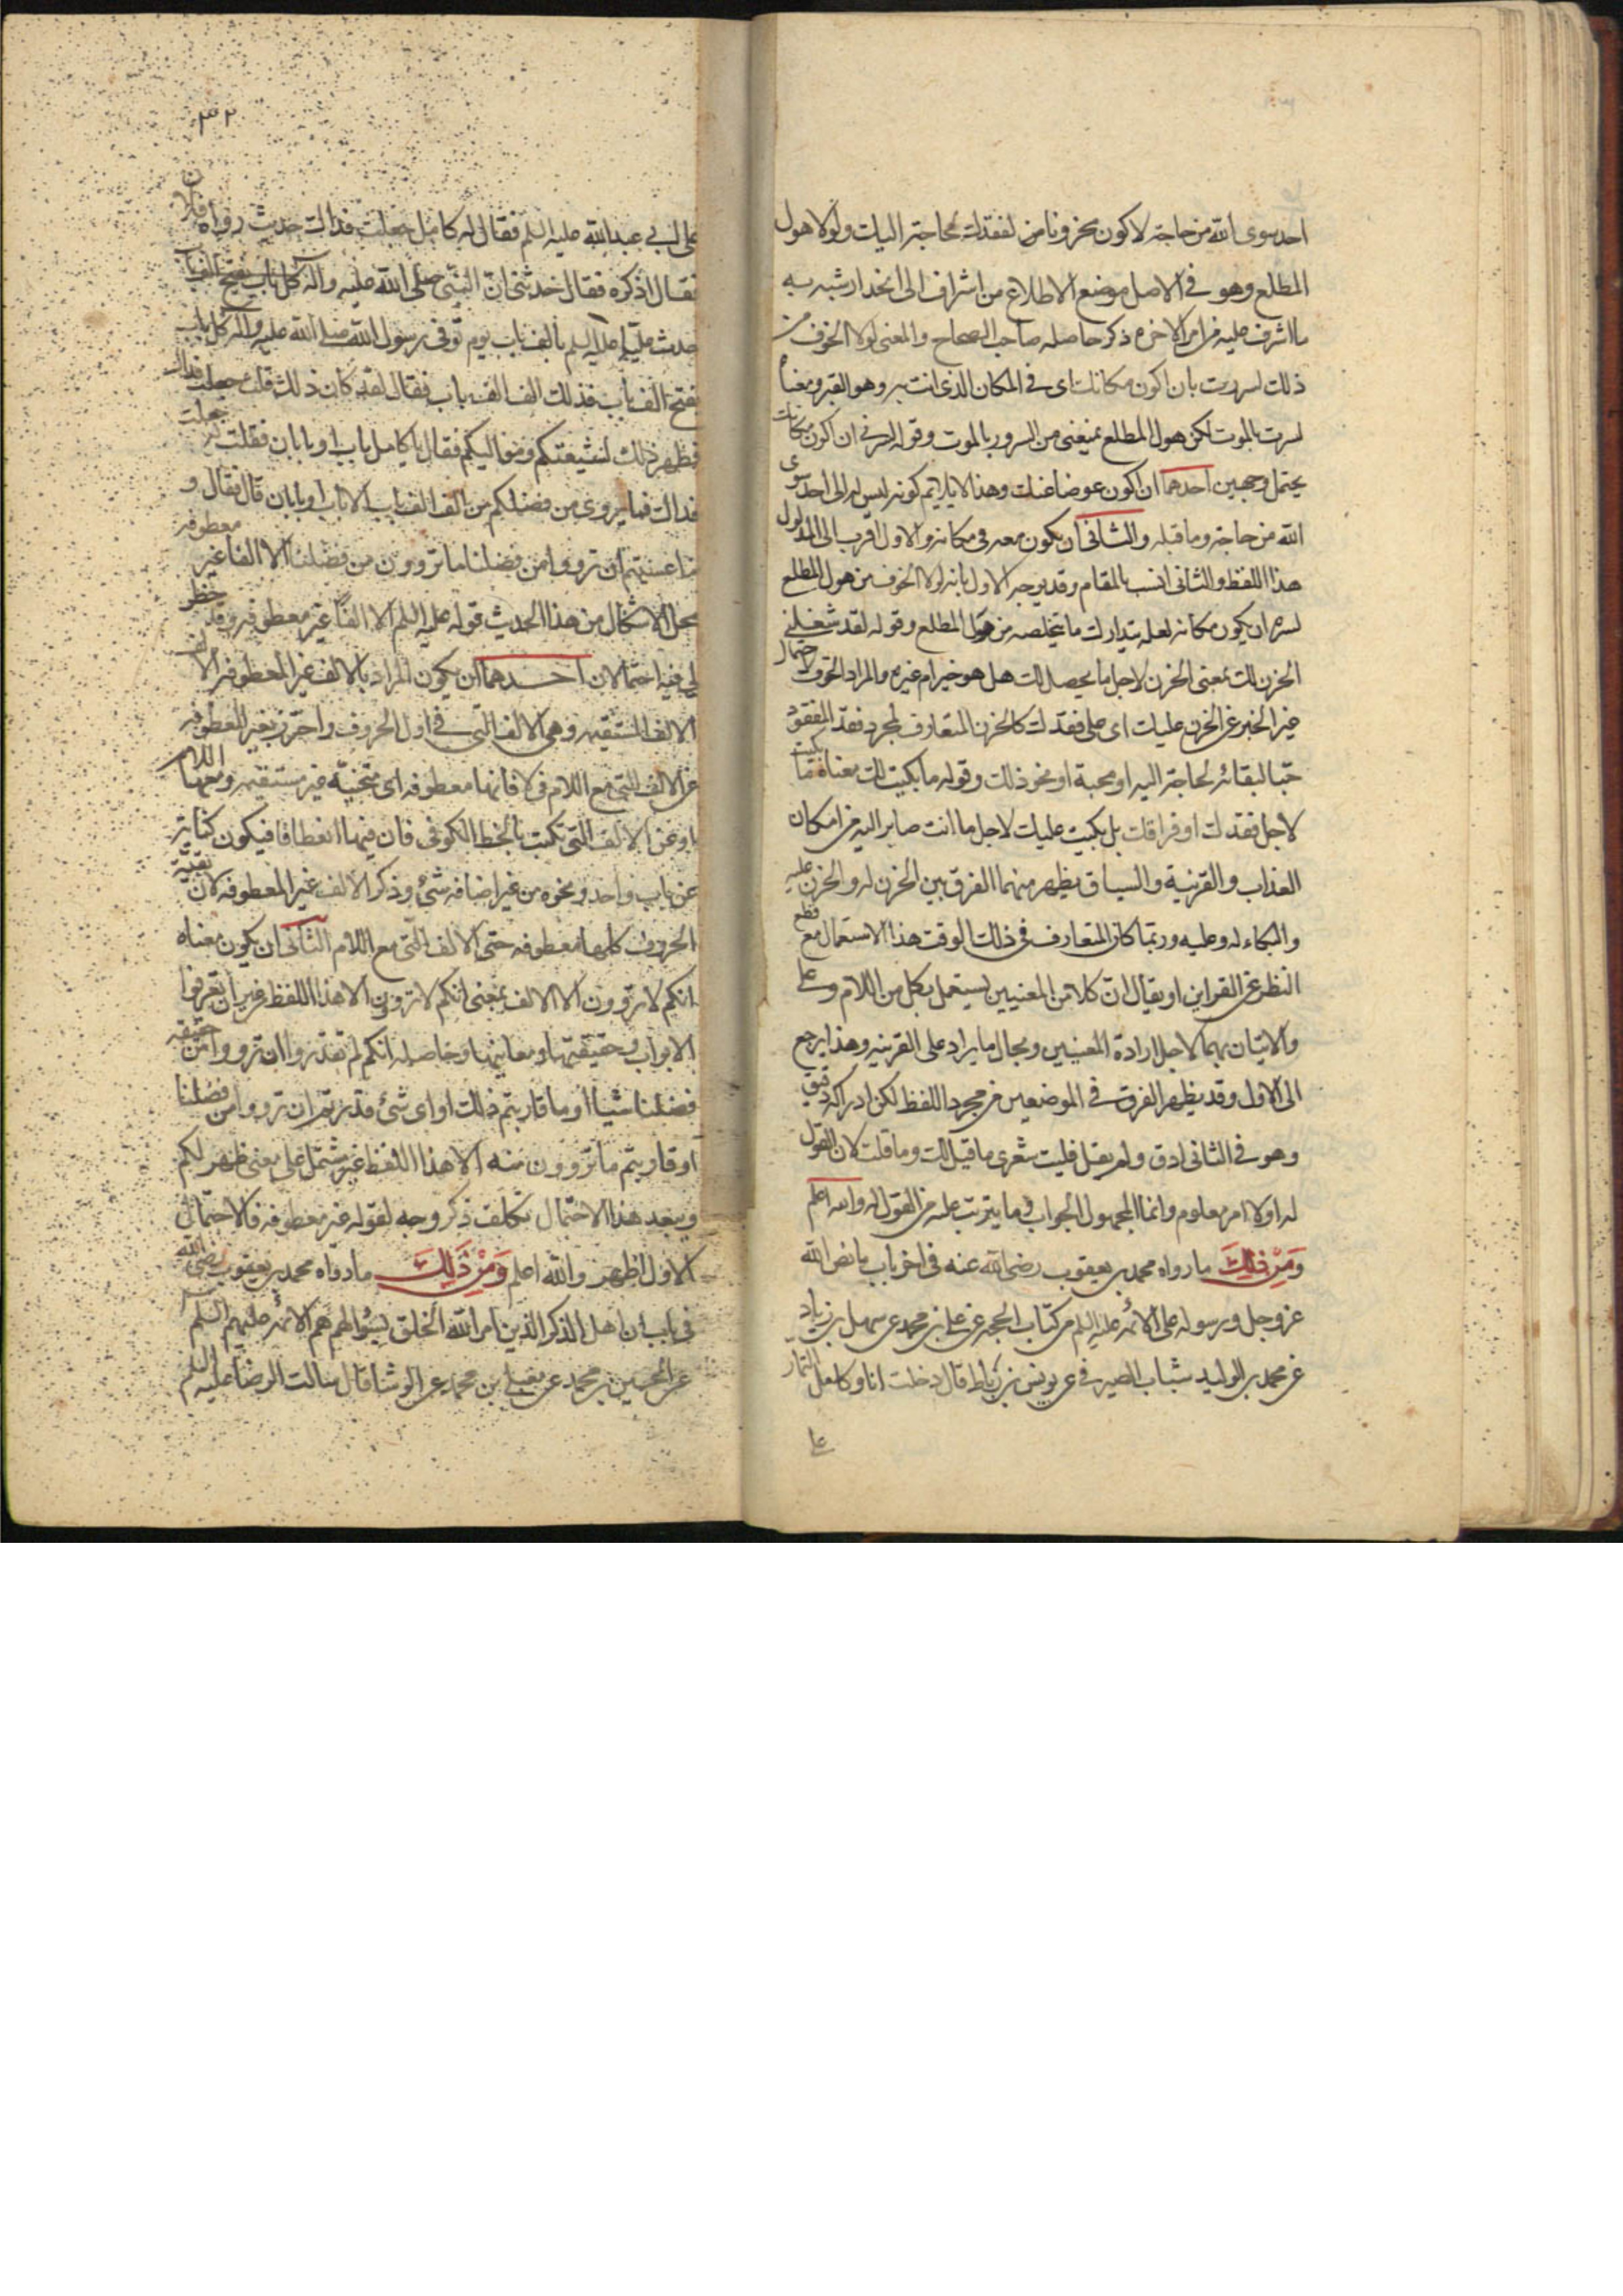 احد سوى الله من حاجة لاكون محزونا من لفقدك لحاجة اليك ولولا هول
المطلع وهو فى الاصل موضع الاطلاع من اشراف الى انحدار شبه به
ما اشرف عليه من امر الاخرة ذكر حاصله صاحب الصحاح والمعنى لولا الخوف من
ذلك لسررت بان اكون مكانك اى فى المكان الذى انت به وهو القبر ومعناه
لسررت بالموت لكن هول المطلع يمنعنى من السرور بالموت وقوله لسرنى ان اكون مكانك
يحتمل وجهين احدهما ان اكون عوضا عنك وهذا لا يلايم كونه ليس له الى احد سوى
الله من حاجة وما قبله والثانى ان يكون معه فى مكانه والاول اقرب الى مدلول
هذا اللفظ والثانى انسب بالمقام وقد يوجه الاول بانه لولا الخوف من هول المطلع
لسره ان يكون مكانه لعله يتدارك ما يخلصه من هول المطلع وقوله لقد شغلنى
الحزن لك بمعنى الحزن لاجل ما يحصل لك هل هو خير ام غيره والمراد الخوف لاحتمال
غير الخير عن الحزن عليك اى على فقدك كالحزن المتعارف لمجرد فقد المفقود
حبا لبقائه لحاجة اليه او محبة او نحو ذلك وقوله ما بكيت لك معناه ما بكيت
لاجل فقدك او فراقك بل بكيت عليك لاجل ما انت صاير اليه من امكان
العذاب والقرينة والسياق يظهر منهما الفرق بين الحزن له والحزن عليه
والبكاء له وعليه وربما كان المتعارف فى ذلك الوقت هذا الاستعمال مع قطع
النظر عن القراين او يقال ان كلا من المعنيين يستعمل بكل من اللام وعلى
والاتيان بهما لاجل ارادة المعنيين ويحال ما يراد على القرينه وهذا يرجع
الى الاول وقد يظهر الفرق فى الموضعين من مجرد اللفظ لكن ادراكه دقيق
وهو فى الثانى ادق ولم يقل فليت شعرى ما قيل لك وما قلت لان القول
له اولا امر معلوم وانما المجهول الجواب فى ما يترتب عليه من القول له والله اعلم
وَمِنْ ذلِكَ ما رواه محمد بن يعقوب رضى الله عنه فى اخر باب ما نص الله
عز وجل ورسوله على الائمه عليهم السلم من كتاب الحجه عن على بن محمد عن سهل بن زياد
عن محمد بن الوليد شباب الصيرفى عن يونس بن رباط قال دخلت انا وكامل التمار
على
٣٢
على ابى عبد الله عليه السلم فقال له كامل جعلت فداك حديث رواه فلان
فقال اذكره فقال حدثنى ان النبى صلى الله عليه وآله
حدث عليا عليه السلم بالف باب يوم توفى رسول الله صلى الله عليه وآله كل باب
يفتح الف باب فذلك الف الف باب فقال لقد كان ذلك قلت جعلت فداك
فظهر ذلك لشيعتكم ومواليكم فقال يا كامل باب او بابان فقلت له جعلت
فداك فما يروى من فضلكم من الف الف باب الا باب او بابان قال فقال و
ما عسيتم ان ترووا من فضلنا ما تروون من فضلنا الا الفا غير معطوفه
محل الاشكال من هذا الحديث قوله عليه السلم الا الفا غير معطوفه وقد خطر
لى فيه احتمالان احـدهما ان يكون المراد بالالف غير المعطوفه الالف
الالف المستقيمه وهى الالف التى فى اول الحروف واحترز بغير المعطوفه
عن الالف التى مع اللام فى لا فانها معطوفه اى منحنيه غير مستقيمه ومعها اللام
او عن الالف التى تكتب بالخط الكوفى فان فيها انعطافا فيكون كناية
عن باب واحد ونحوه من غير اضافه شئ وذكر الالف غير المعطوفه لان بقية
الحروف كلها معطوفه حتى الالف التى مع اللام الثانى ان يكون معناه
انكم لا تروون الا الالف بمعنى انكم لا تروون الا هذا اللفظ من غير ان تعرفوا
الابواب وحقيقتها ومعانيها وحاصله انكم لم تقدروا ان ترووا من حقيقه
فضلنا شيئا او ما قاربتم ذلك او اى شئ قدرتم ان ترووا من فضلنا
او قاربتم ما تروون منه الا هذا اللفظ غير مشتمل على معنى ظهر لكم
ويبعد هذا الاحتمال تكلف ذكر وجه لقوله غير معطوفه فالاحتمال
الاول اظهر والله اعلم وَمِنْ ذَلِكَ ما رواه محمد بن يعقوب رضى الله
فى باب ان اهل الذكر الذين امر الله الخلق بسؤالهم هم الائمه عليهم السلم
عن الحسين بن محمد عن معلى بن محمد عن الوشا قال سالت الرضا عليه السلم